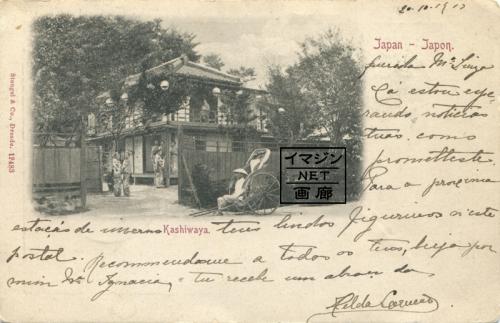 20-10-1903
Japan – Japon.
querida Mª Luiza
Cá estou espe
rando noticias
tuas, como
prometteste.
Para a proxima
estação de inverno tens lindos figurinos n'este
postal. Recommendame a todos os teus, beija por
mim Mª Ignacia, e tu recebe um abraço da
Hilda
Kashiwaya.
Stengel & Co., Dresde. 12483
イマジン
.NET
画廊